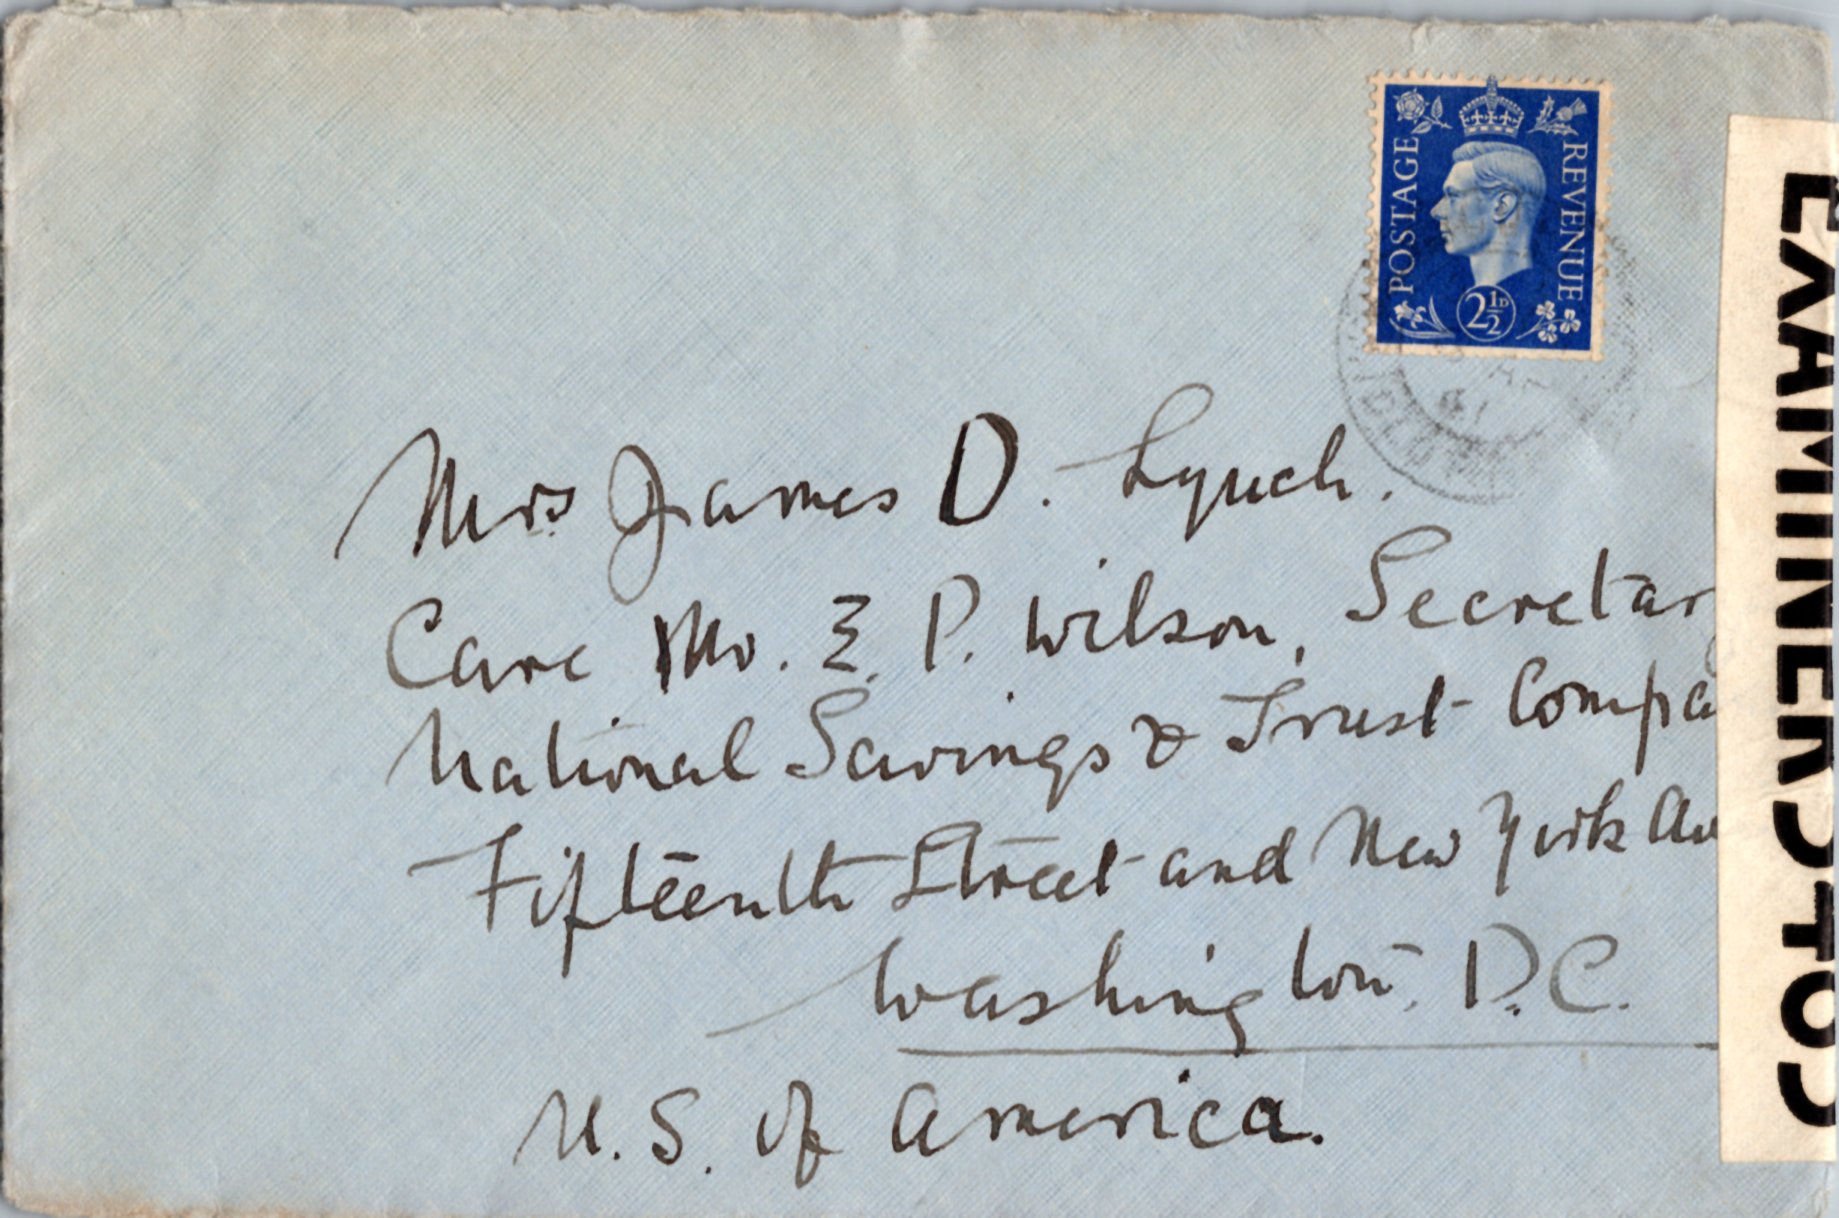 POSTAGE
REVENUE
2½D
Mrs James D. Lynch.
Care Mr. E. P. Wilson, Secretar
National Savings & Trust Compa
Fifteenth Street and New York Av
Washington. D.C.
U.S. of America.
EXAMINER